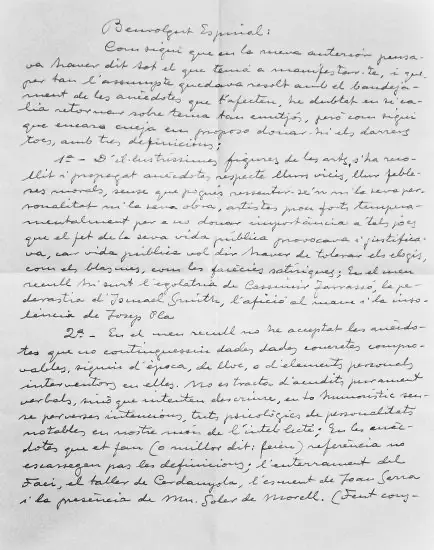 Benvolgut Espinal:
Com sigui que en la meva anterior pensa-
va haver dit tot el que tenia a manifestar-te, i que
per tan l'assumpte quedava resolt amb el bandeja-
ment de les anècdotes que t'afecten, he dubtat en si ca-
lia retornar sobre tema tan enutjós, però com sigui
que encara cueja em proposo donar-hi els darrers
tocs, amb tres definicions:
1ª - D'il·lustrissimes figures de les arts, s'ha reco-
llit i propagat anècdotes respecte llurs vicis, llurs feble-
ses morals, sense que pogués ressentir-se'n ni la seva per-
sonalitat ni la seva obra, artistes prou forts tempera-
mentalment per a no donar importància a tals jocs
que el fet de la seva vida pública provocava i justifica-
va, car vida pública vol dir haver de tolerar els elogis,
com els blasmes, com les facècies satíriques; En el meu
recull hi surt l'egolatria de Cassimir Tarrassó, la pe-
derastia d'Ismael Smith, l'afició al i la inso-
lència de Josep Pla
2ª - En el meu recull no he acceptat les anècdo-
tes que no continguessin dades dades concretes compro-
vables, siguin d'època, de lloc, o d'elements personals
interventors en elles. No es tracta d'acudits purament
verbals, sinó que intenten descriure, en to humorístic sen-
se perverses intencions, trets psicològics de personalitats
notables en nostre món de l'intel·lecte; En les anèc-
dotes que et fan (o millor dit: feien) referència no
escassegen pas les definicions: l'enterrament del
el taller de Cerdanyola, l'esment de Joan Serra
i la presència de Mn. Soler de Morell. (Fent cons-